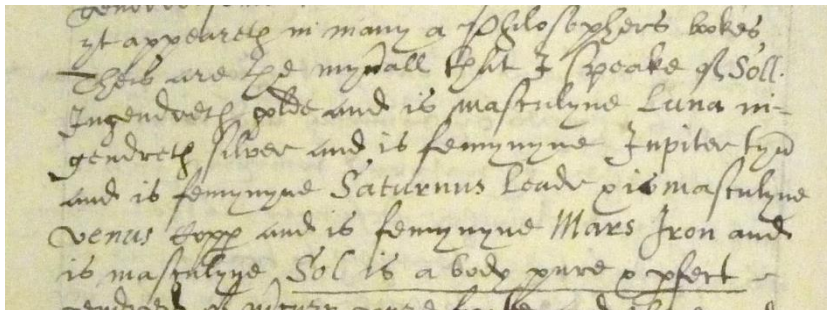 yt appeareth in many a Philosophers bookes
Theis are the myn̄all that I speake of Soll.
Ingendreth golde and is masculyne Luna in-
gendreth silver and is femynyne Jupiter tyn̄
and is femynyne Saturnus Leade & is masculyne
venus Copp and is femynyne Mars Iron and
is masculyne Sol is a body pure & pfect